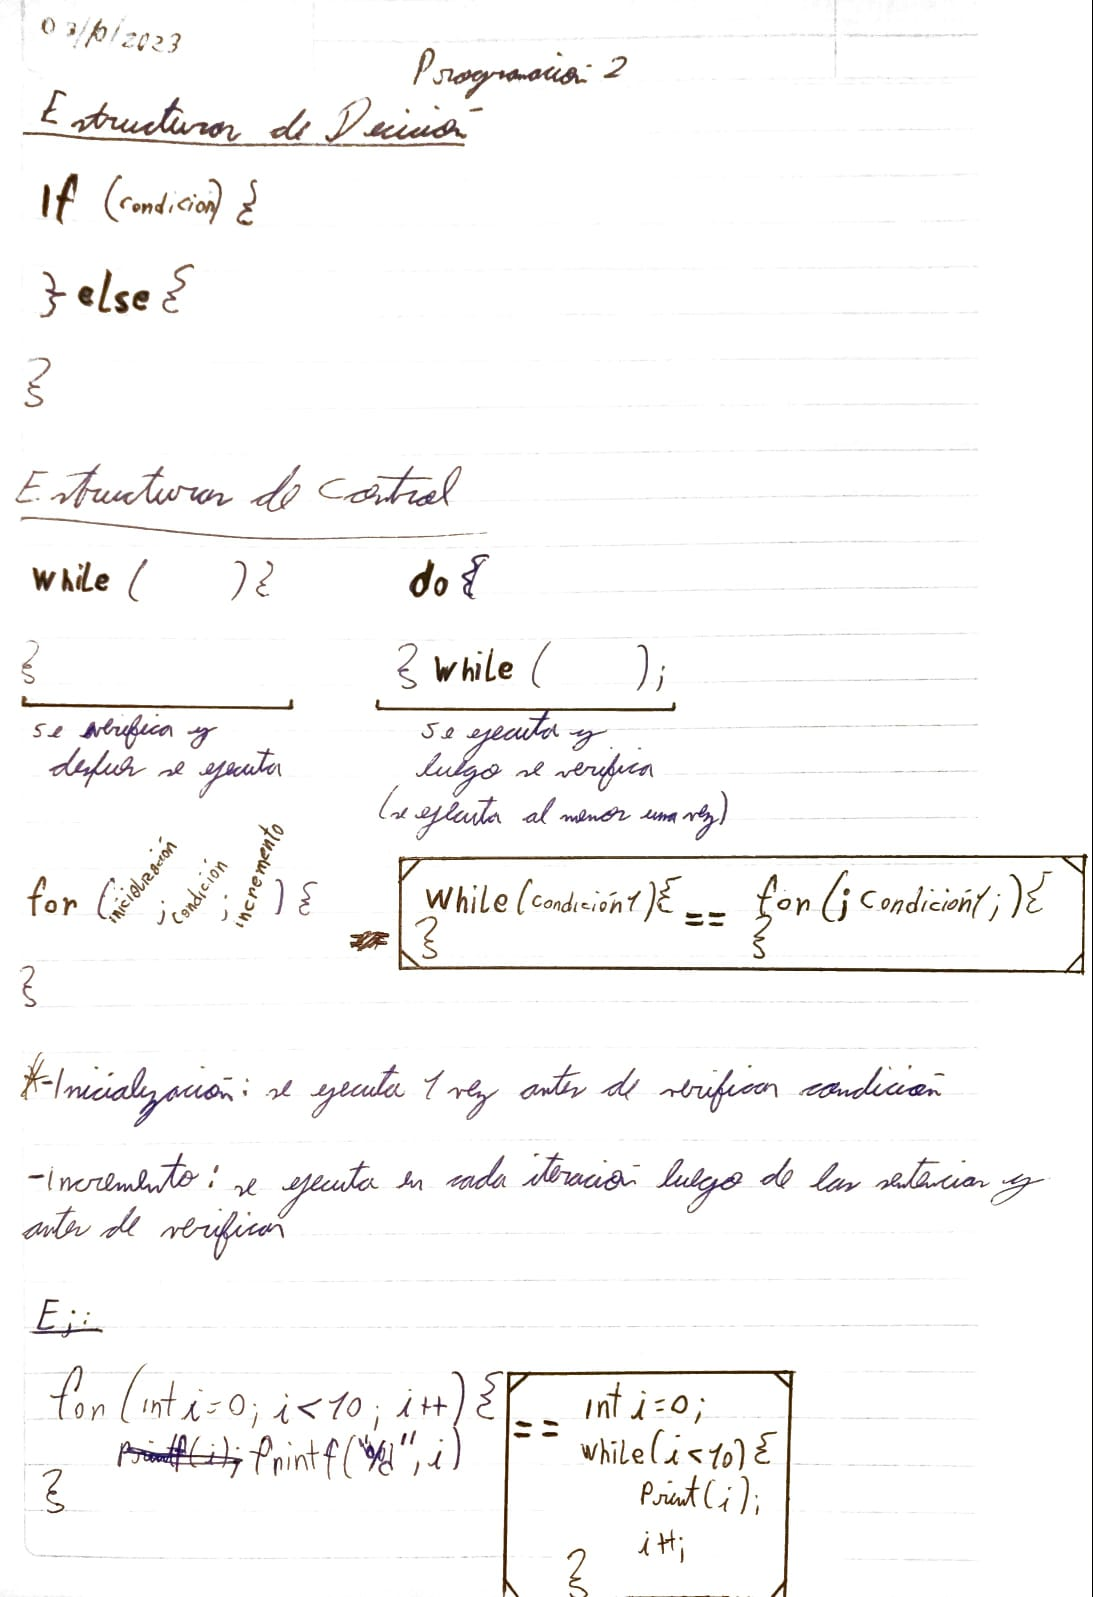 03/10/2023
Programación 2
Estructuras de Decisión
If (condicion) {
} else {
}
Estructuras de Control
while (        ) {
}
se verifica y
despues se ejecuta
do {
} while (        );
se ejecuta y
luego se verifica
(se ejecuta al menos una vez)
for (inicialización ; condición ; incremento ) {
}
while (condición1) { == for (; condición1;) {
} }
*-Inicialización: se ejecuta 1 vez antes de verificar condición
-Incremento: se ejecuta en cada iteración luego de las sentencias y
antes de verificar
Ej:
for (int i=0; i<10; i++) {
printf(i); Printf("%d", i)
}
== int i=0;
while (i<10) {
Print(i);
i++;
}